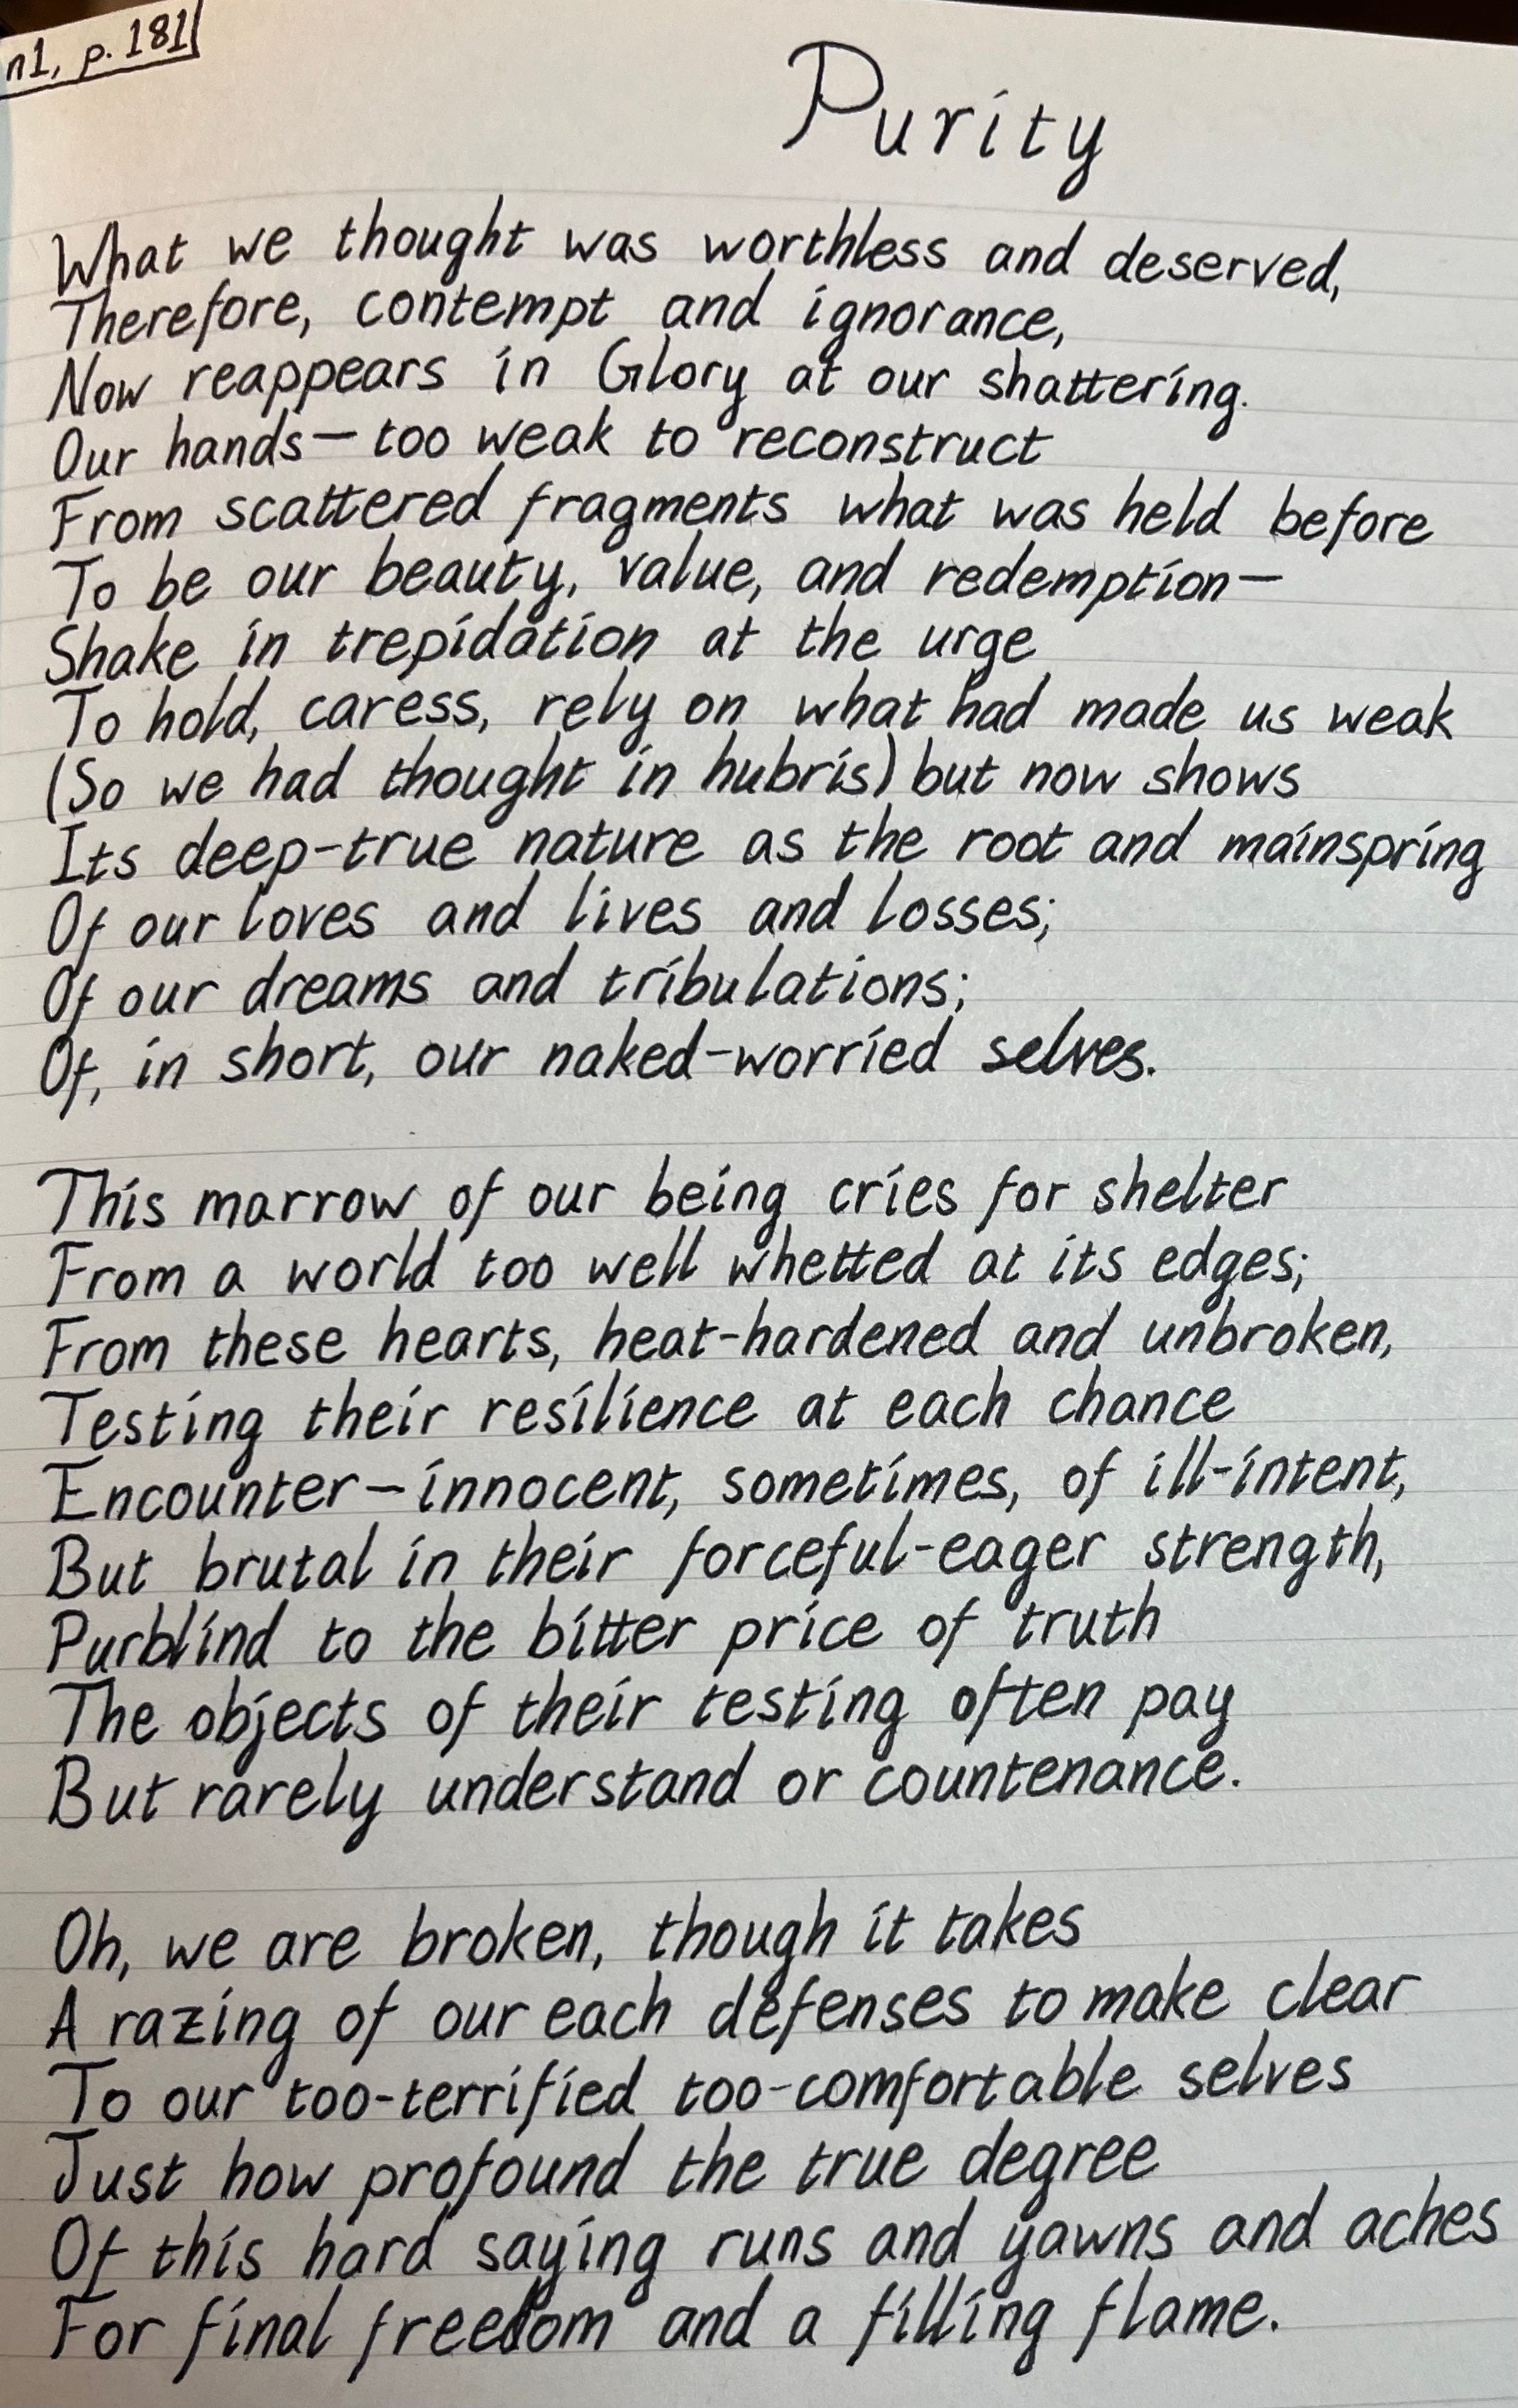 n1, p. 181
Purity
What we thought was worthless and deserved,
Therefore, contempt and ignorance,
Now reappears in Glory at our shattering.
Our hands—too weak to reconstruct
From scattered fragments what was held before
To be our beauty, value, and redemption—
Shake in trepidation at the urge
To hold, caress, rely on what had made us weak
(So we had thought in hubris) but now shows
Its deep-true nature as the root and mainspring
Of our loves and lives and losses;
Of our dreams and tribulations;
Of, in short, our naked-worried selves.
This marrow of our being cries for shelter
From a world too well whetted at its edges;
From these hearts, heat-hardened and unbroken,
Testing their resilience at each chance
Encounter—innocent, sometimes, of ill-intent,
But brutal in their forceful-eager strength,
Purblind to the bitter price of truth
The objects of their testing often pay
But rarely understand or countenance.
Oh, we are broken, though it takes
A razing of our each defenses to make clear
To our too-terrified too-comfortable selves
Just how profound the true degree
Of this hard saying runs and yawns and aches
For final freedom and a filling flame.